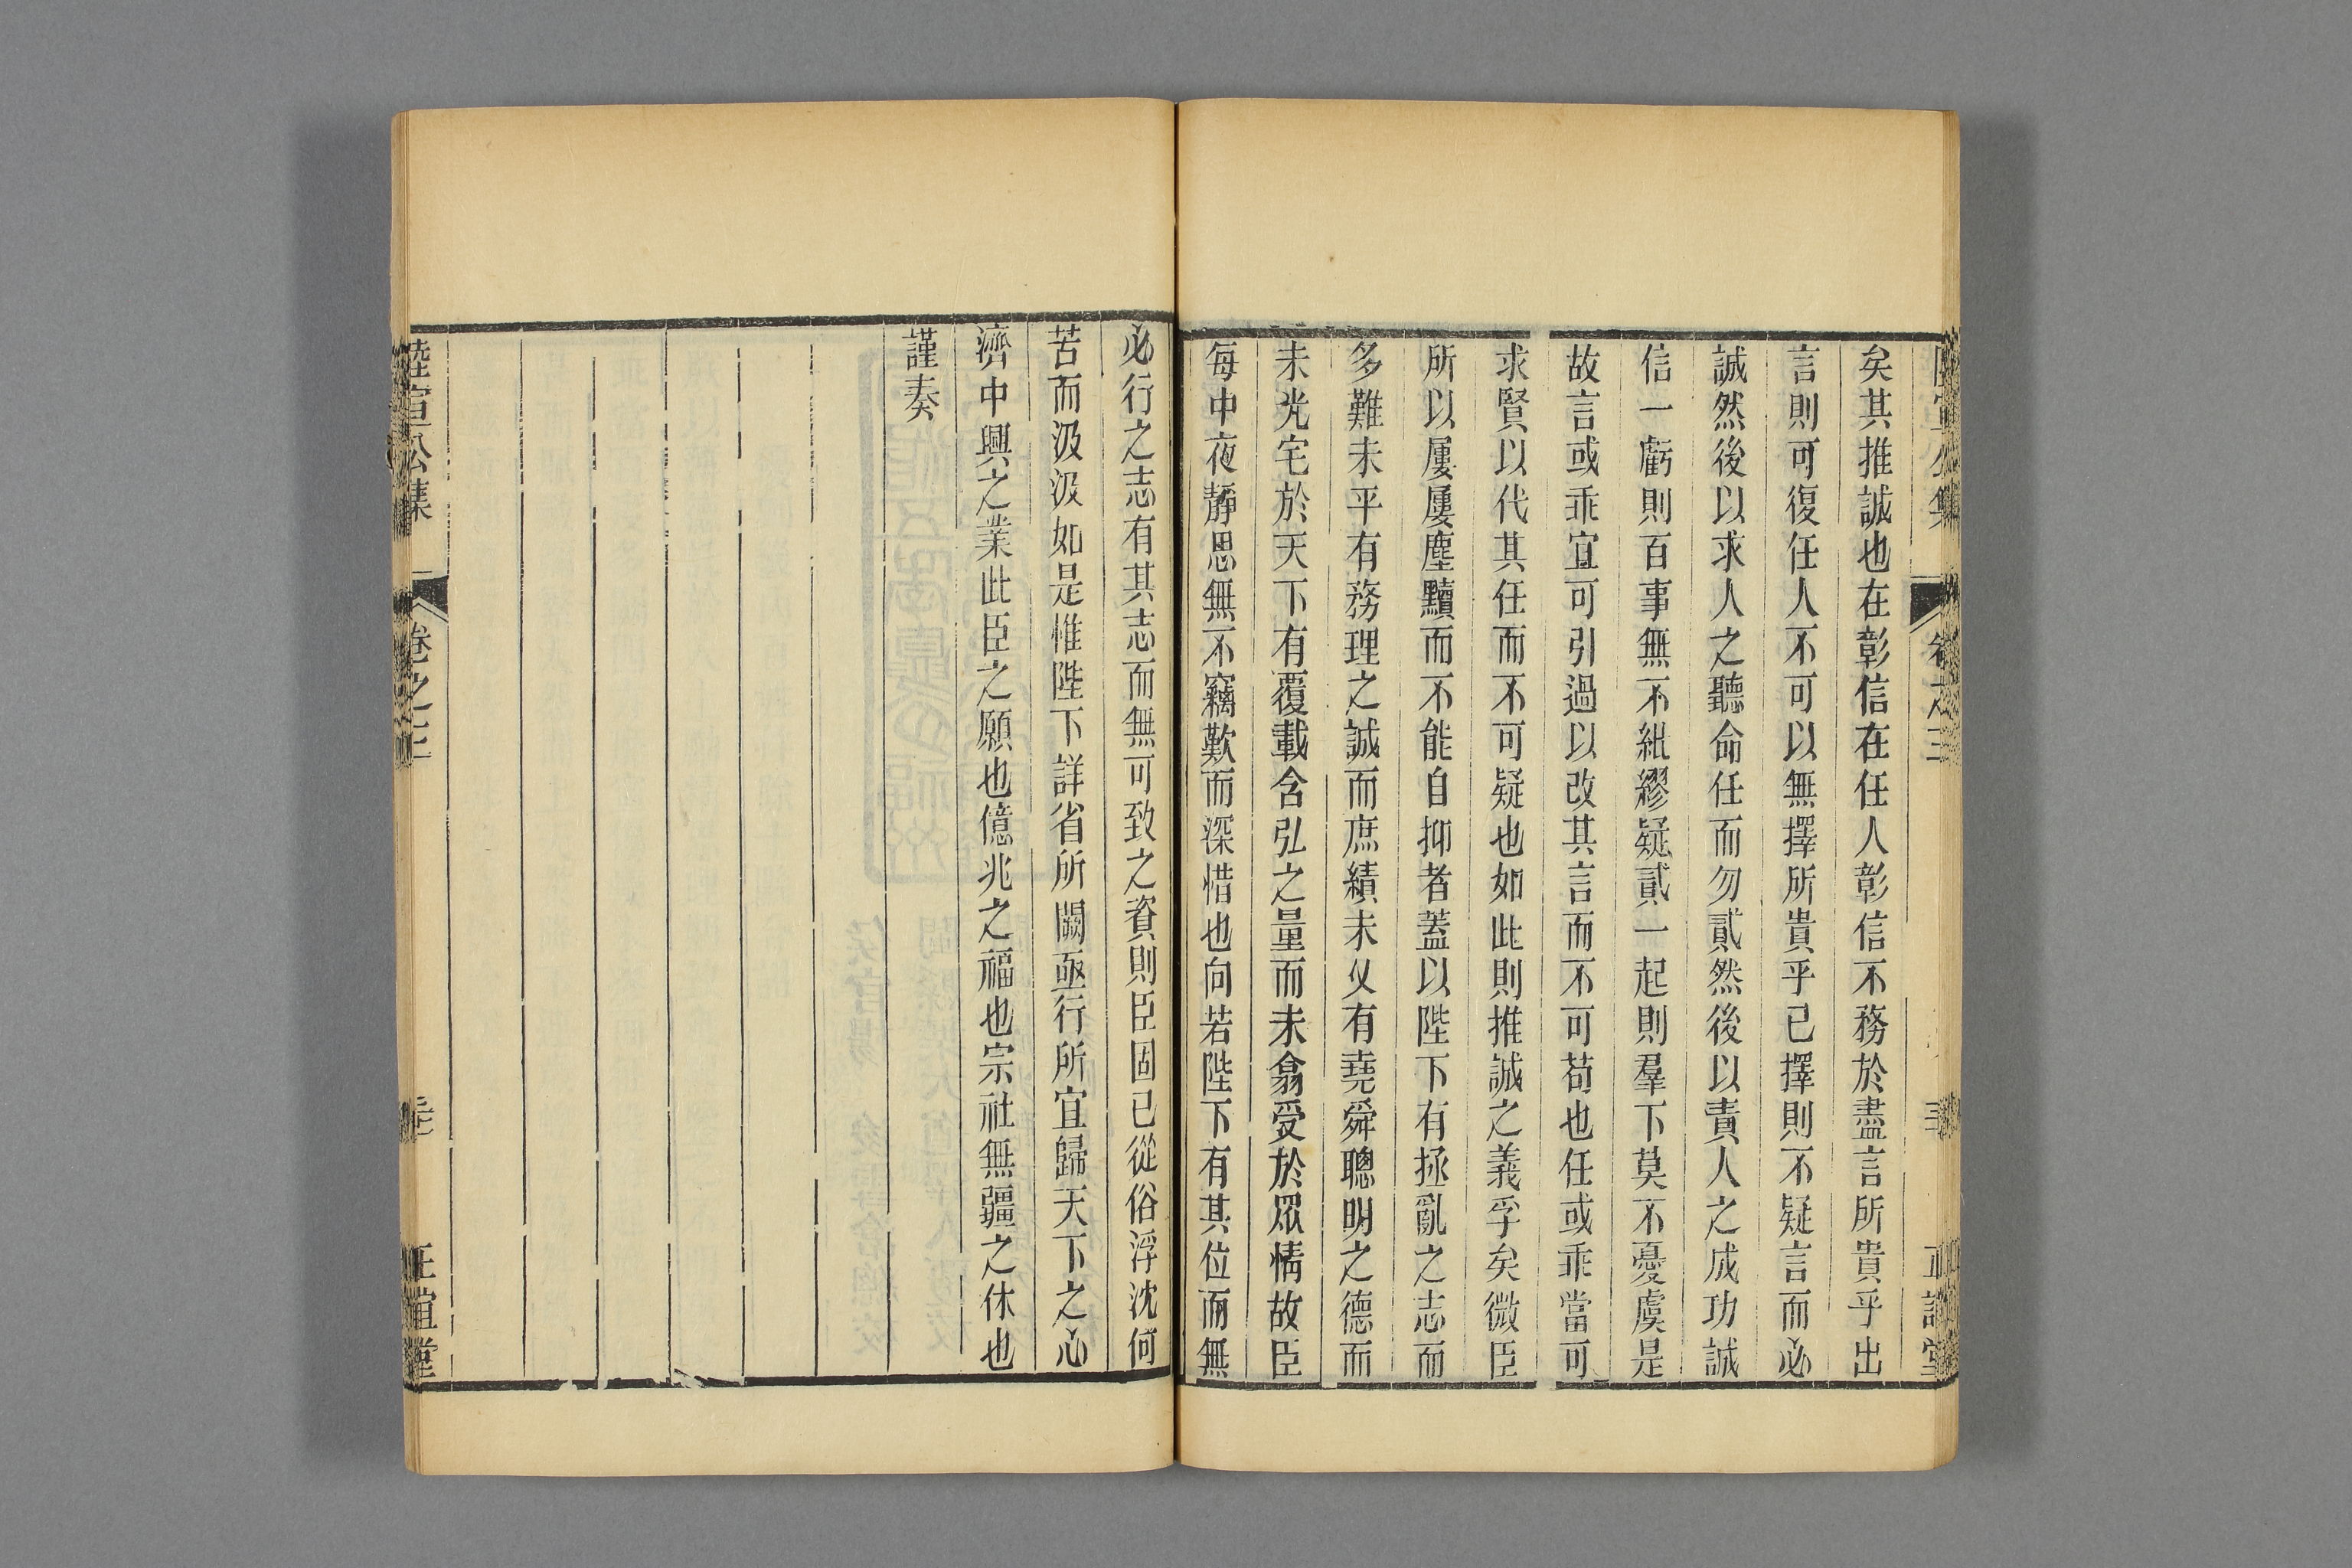 矣其推誠也在彰信在任人彰信不務於盡言所貴乎出
言則可復任人不可以無擇所貴乎已擇則不疑言而必
誠然後以求人之聽命任而勿貳然後以責人之成功誠
信一虧則百事無不紕繆疑貳一起則羣下莫不憂虞是
故言或乖宜可引過以改其言而不可苟也任或乖當可
求賢以代其任而不可疑也如此則推誠之義孚矣微臣
所以屢屢塵黷而不能自抑者蓋以陛下有拯亂之志而
多難未平有務理之誠而庶績未乂有堯舜聰明之德而
未光宅於天下有覆載含弘之量而未翕受於眾情故臣
每中夜靜思無不竊歎而深惜也向若陛下有其位而無
必行之志有其志而無可致之資則臣固已從俗浮沈何
苦而汲汲如是惟陛下詳省所闕亟行所宜歸天下之心
濟中興之業此臣之願也億兆之福也宗社無疆之休也
謹奏
陸宣公集 卷之三 正誼堂